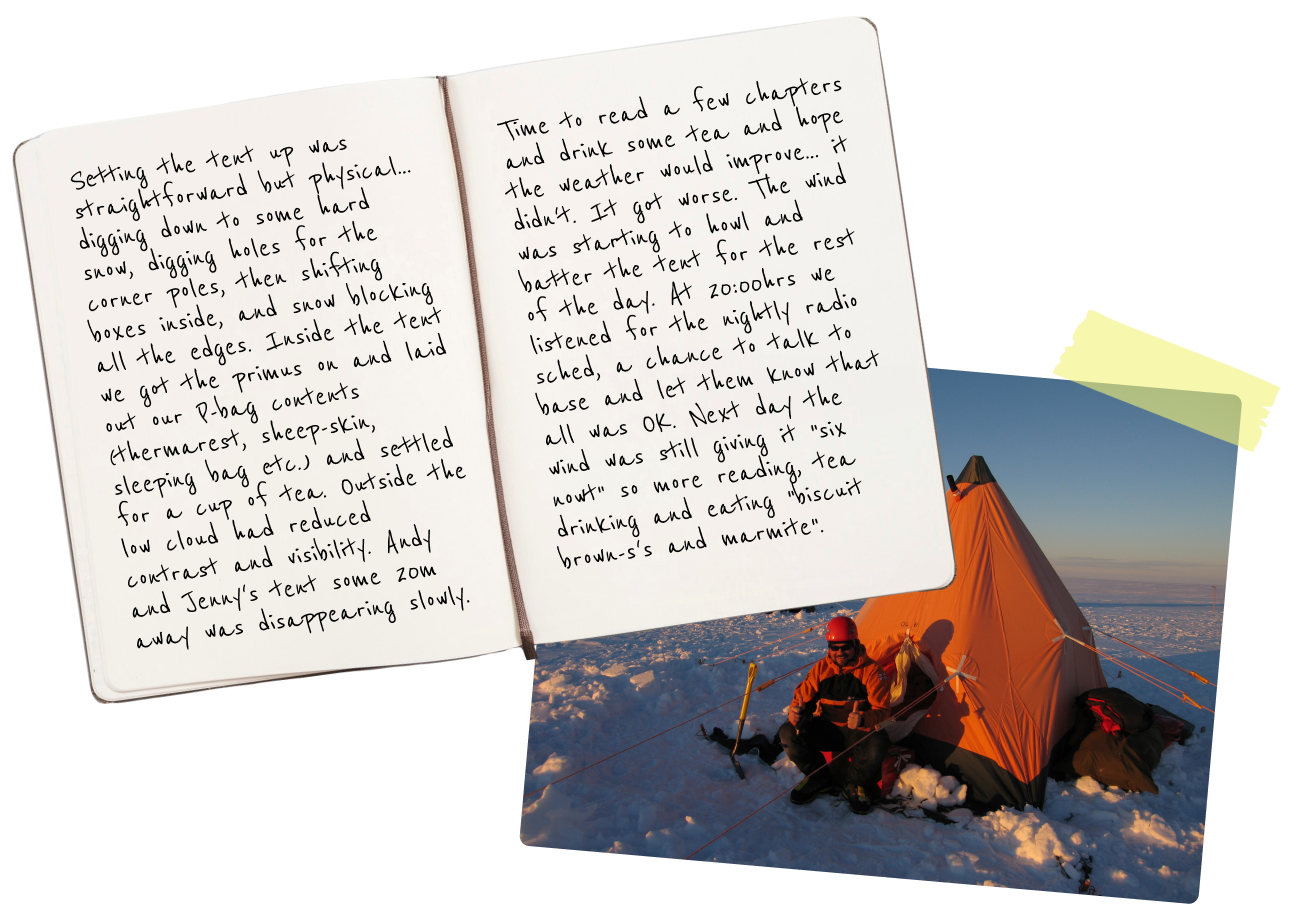 Setting the tent up was
straightforward but physical...
digging down to some hard
snow, digging holes for the
corner poles, then shifting
boxes inside, and snow blocking
all the edges. Inside the tent
we got the primus on and laid
out our P-bag contents
(thermarest, sheep-skin,
sleeping bag etc.) and settled
for a cup of tea. Outside the
low cloud had reduced
contrast and visibility. Andy
and Jenny's tent some 20m
away was disappearing slowly.
Time to read a few chapters
and drink some tea and hope
the weather would improve... it
didn't. It got worse. The wind
was starting to howl and
batter the tent for the rest
of the day. At 20:00hrs we
listened for the nightly radio
sched, a chance to talk to
base and let them know that
all was OK. Next day the
wind was still giving it "six
nowt" so more reading, tea
drinking and eating "biscuit
brown-s's and marmite".